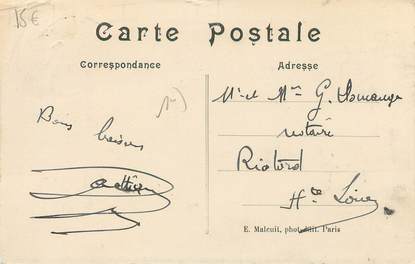 15€
Carte Postale
Correspondance
Adresse
Mr et Mme G.
notaire
Riotord
Hte Loire
Bons baisers
E. Malcuit, phot. édit. Paris